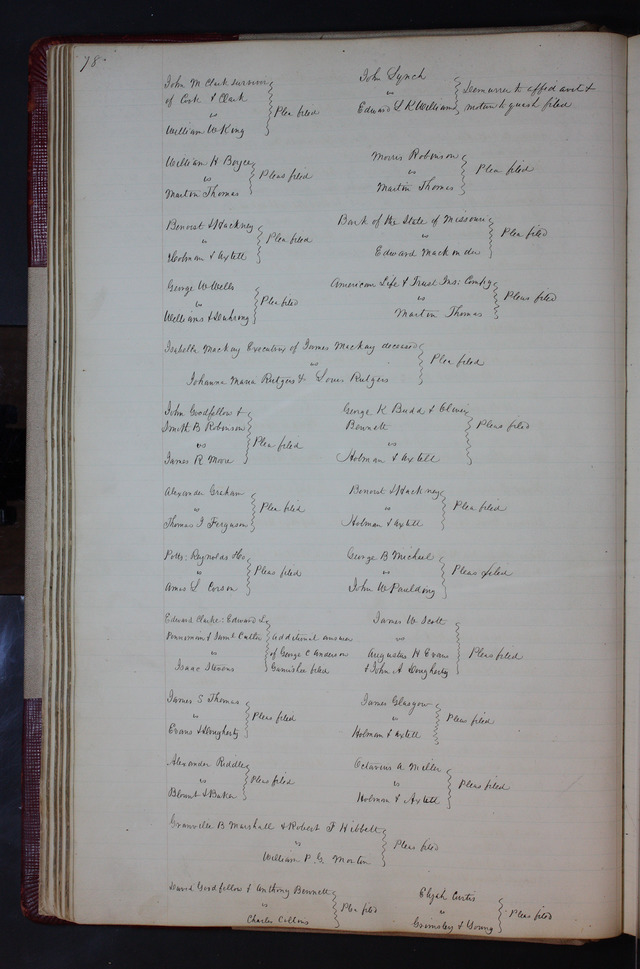 78
John M Clark survivor
of Cook & Clark
vs
William W King
Plea filed
John Lynch
vs
Edward L K Williams
Demurrer to affidavit &
motion to quash filed
William H Boyce
vs
Martin Thomas
Pleas filed
Morris Robinson
vs
Martin Thomas
Plea filed
Benoist & Hackney
vs
Holman & Axtell
Plea filed
Bank of the State of Missouri
vs
Edward
Plea filed
George W Wells
vs
Williams &
Plea filed
American Life & Trust Ins: Compy
vs
Martin Thomas
Pleas filed
Isabella Mackay Executrix of James Mackay deceased
vs
Johanna Maria Rutgers & Louis Rutgers
Plea filed
John Goodfellow &
Smith B Robinson
vs
James R Moore
Plea filed
George K Budd & Oliver
Bennett
vs
Holman & Axtell
Pleas filed
Alexander Graham
vs
Thomas J Ferguson
Plea filed
Benoist & Hackney
vs
Holman & Axtell
Plea filed
Potts: Reynolds &Co
vs
Amos L Corson
Pleas filed
George B Michael
vs
John W Paulding
Pleas filed
Edward Clarke: Edward L
Penniman & Saml Cutler
vs
Isaac Stevens
Additional answer
of George C Anderson
Garnishee filed
James W Scott
vs
Augustus H Evans
& John A Dougherty
Pleas filed
James S Thomas
vs
Evans & Dougherty
Pleas filed
James Glasgow
vs
Holman & Axtell
Pleas filed
Alexander Riddle
vs
Blount & Baker
Pleas filed
Octavius A Miller
vs
Holman & Axtell
Pleas filed
Granville B Marshall & Robert F Hibbett
vs
William P. G. Morton
Pleas filed
David Goodfellow & Anthony Bennett
vs
Charles Collins
Plea filed
Elijah Curtis
vs
Grimsley & Young
Pleas filed